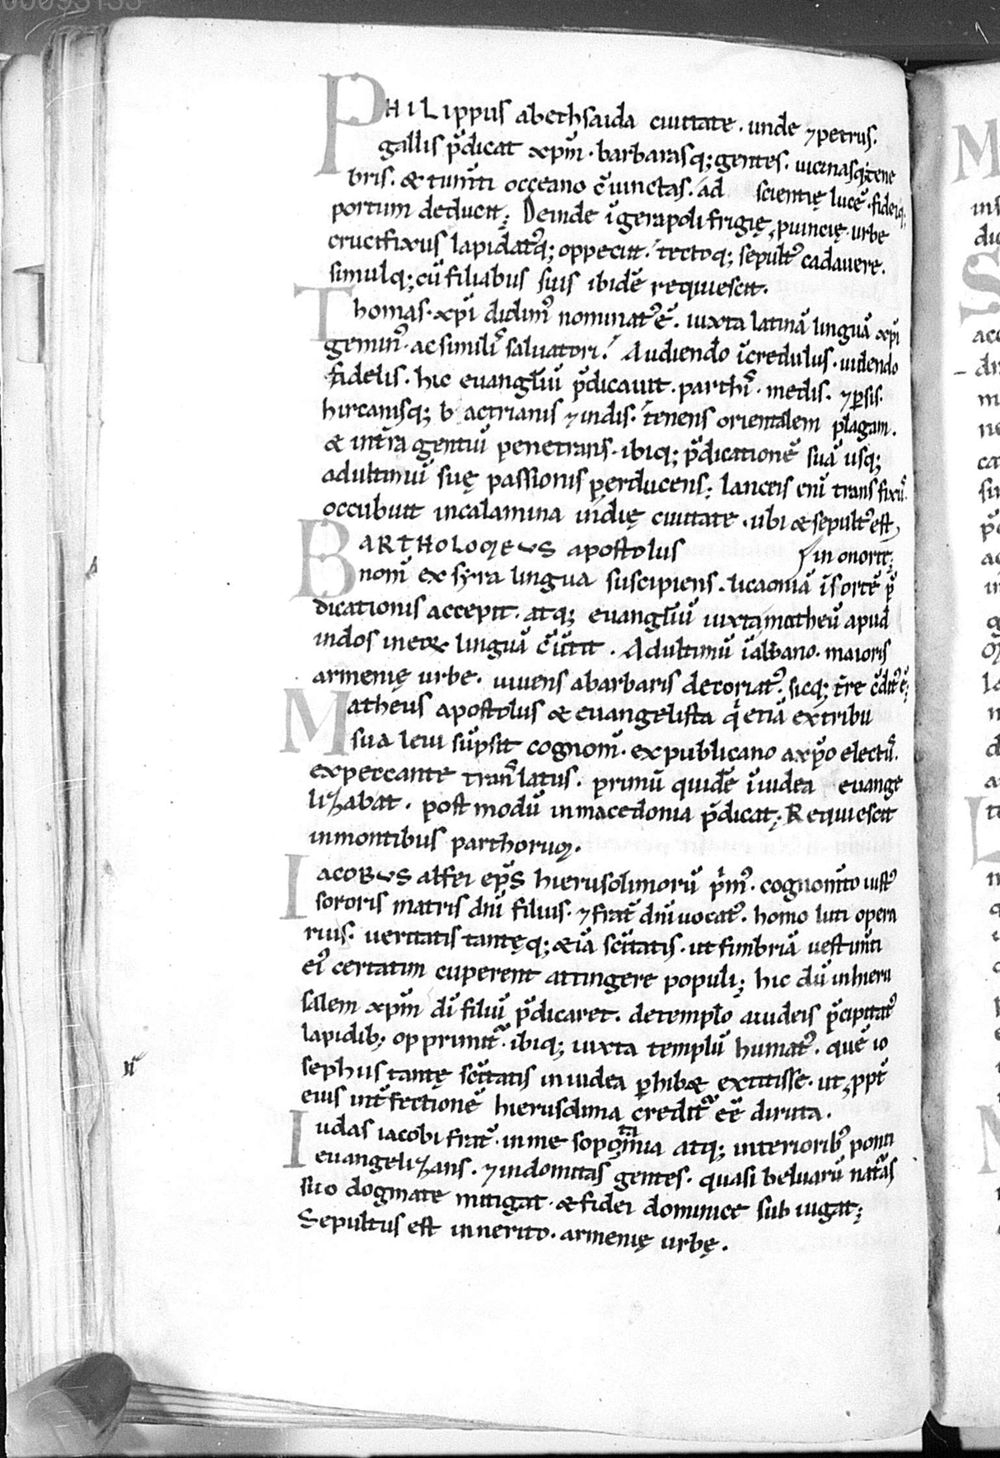 PHILippus abethsaida ciuitate · unde ⁊petrus.
gallis p̄dicat xp̄m · barbarasq; gentes · uicinasq; tene
bris · & tum̄ti occeano c̄uinctas · ad scientię lucē · fideiq;
portum deducit; Deinde ī gerapoli frigię ꝓuincię · urbe
crucifixus lapidatꝰq; oppeciit · rectoq; sepultꝰ cadauere ·
simulq; cū filiabus suis ibidē requiescit ·
Thomas · xp̄i didimꝰ nominatꝰ ē · iuxta latinā linguā xp̄i
geminꝰ · ac similiſ saluatori · Audiendo īcredulus · uidendo
fidelis · hic euangl̄iū p̄dicauit · parthiſ · medis · ⁊ ꝑsis ·
hircanisq; b actrianis ⁊ indis · tenens orientalem plagam ·
& intīa gentiū penetrans · ibiq; p̄dicationē suā usq;
adultimū suę passionis perducens; lanceis eni transfixꝰ ·
occubuit incalamina indię ciuitate · ubi & sepultꝰ est
BARTHOLOMEUS apostolus in onore;
nom̄ ex syra lingua suscipiens · licaoniā ī sortē p̄
dicationis accepit · atq; euangl̄iū iuxta matheū apud
indos in eoꝝ linguā c̄uertit · Adultimū ī albano · maioris
armenię urbe · uiuens abarbaris decoriatꝰ · sicq; t̄re c̄ditꝰ ē;
Matheus apostolus & euangelista q̄ etiā ex tribu
sua leui sūpsit cognom̄ · ex publicano axp̄o electꝰ ·
expeccante translatus · primū quidē ī iudea euange
lizabat · post modū inmacedonia p̄dicat; Requiescit
inmontibus parthoruꝫ ·
IACOBUS alfei ep̄s hierusolimorū p̄mꝰ · cognom̄to iustꝰ
sororis matris dn̄i filius · ⁊ frat̄ dn̄i uocatꝰ · homo luti opera
rius · ueritatis tantęq; & iā sc̄itatis · ut fimbriā uestim̄ti
eiꝰ certatim cuperent attingere populi; hic dū inhieru
salem xp̄m dī filiū p̄dicaret · detemplo aiudeis p̄cipitatꝰ
lapidib; opprimit̄ · ibiq; iuxta templū humatꝰ · quē io
sephus tantę sc̄itatis in iudea ꝑhib& extitisse · ut ꝓpt̄
eius int̄fectionē hierusolima credit̄ eē diruta ·
Iudas iacobi frat̄ · in me sopotamia atq; interiorib; ponti
euangelizans · ⁊ indomitas gentes · quasi beluarū natꝰas
suo dogmate mitigat · & fidei dominice sub iugat;
Sepultus est innerito · armenię urbę ·